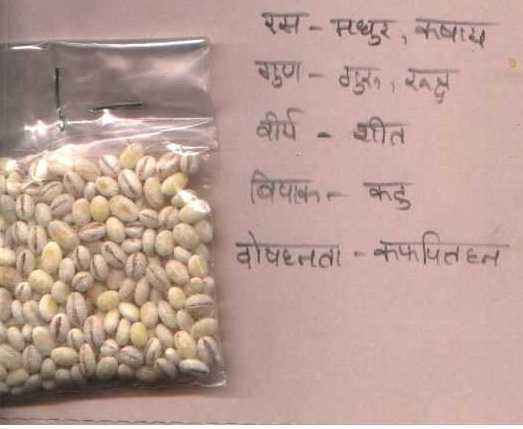 रस - मधुर, कषाय
गुण - गुरु, रूक्ष
वीर्य - शीत
विपाक - कटु
दोषघ्नता - कफपित्तघ्न